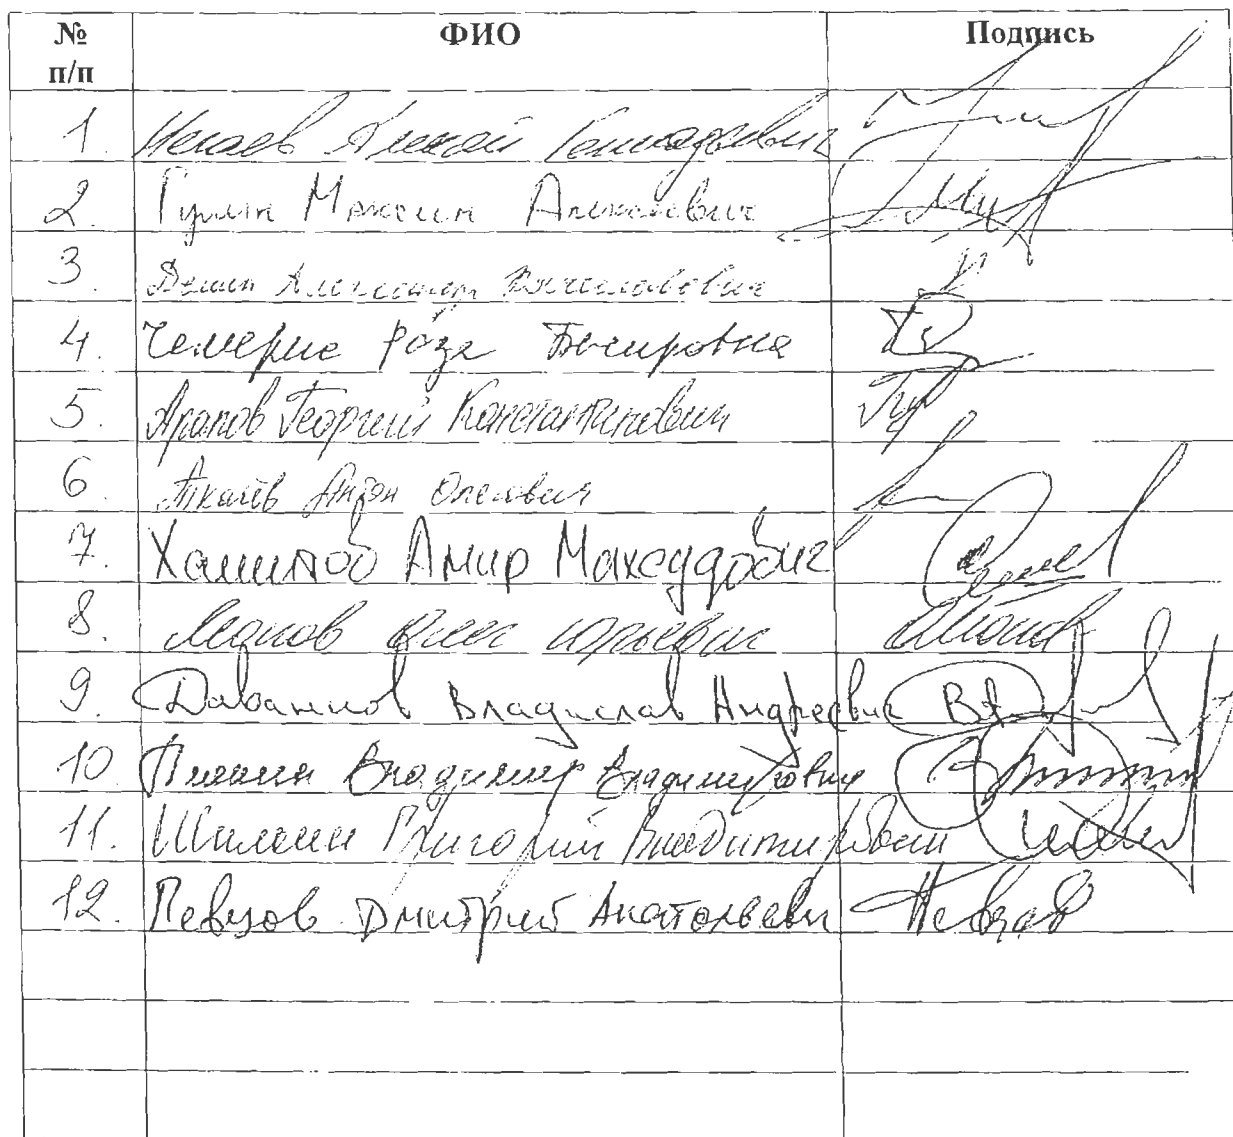 № п/п ФИО Подпись
1. Нечаев Алексей Геннадьевич
2. Гулин Максим Алексеевич
3. Демин Александр Вячеславович
4. Чемерис Роза Басировна
5. Арапов Георгий Константинович
6. Ткачёв Антон Олегович
7. Хамитов Амир Махсудович
8. Леонов Олег Юрьевич
9. Даванков Владислав Андреевич
10. Плякин Владимир Владимирович
11. Шилкин Григорий Владимирович
12. Певцов Дмитрий Анатольевич Певцов